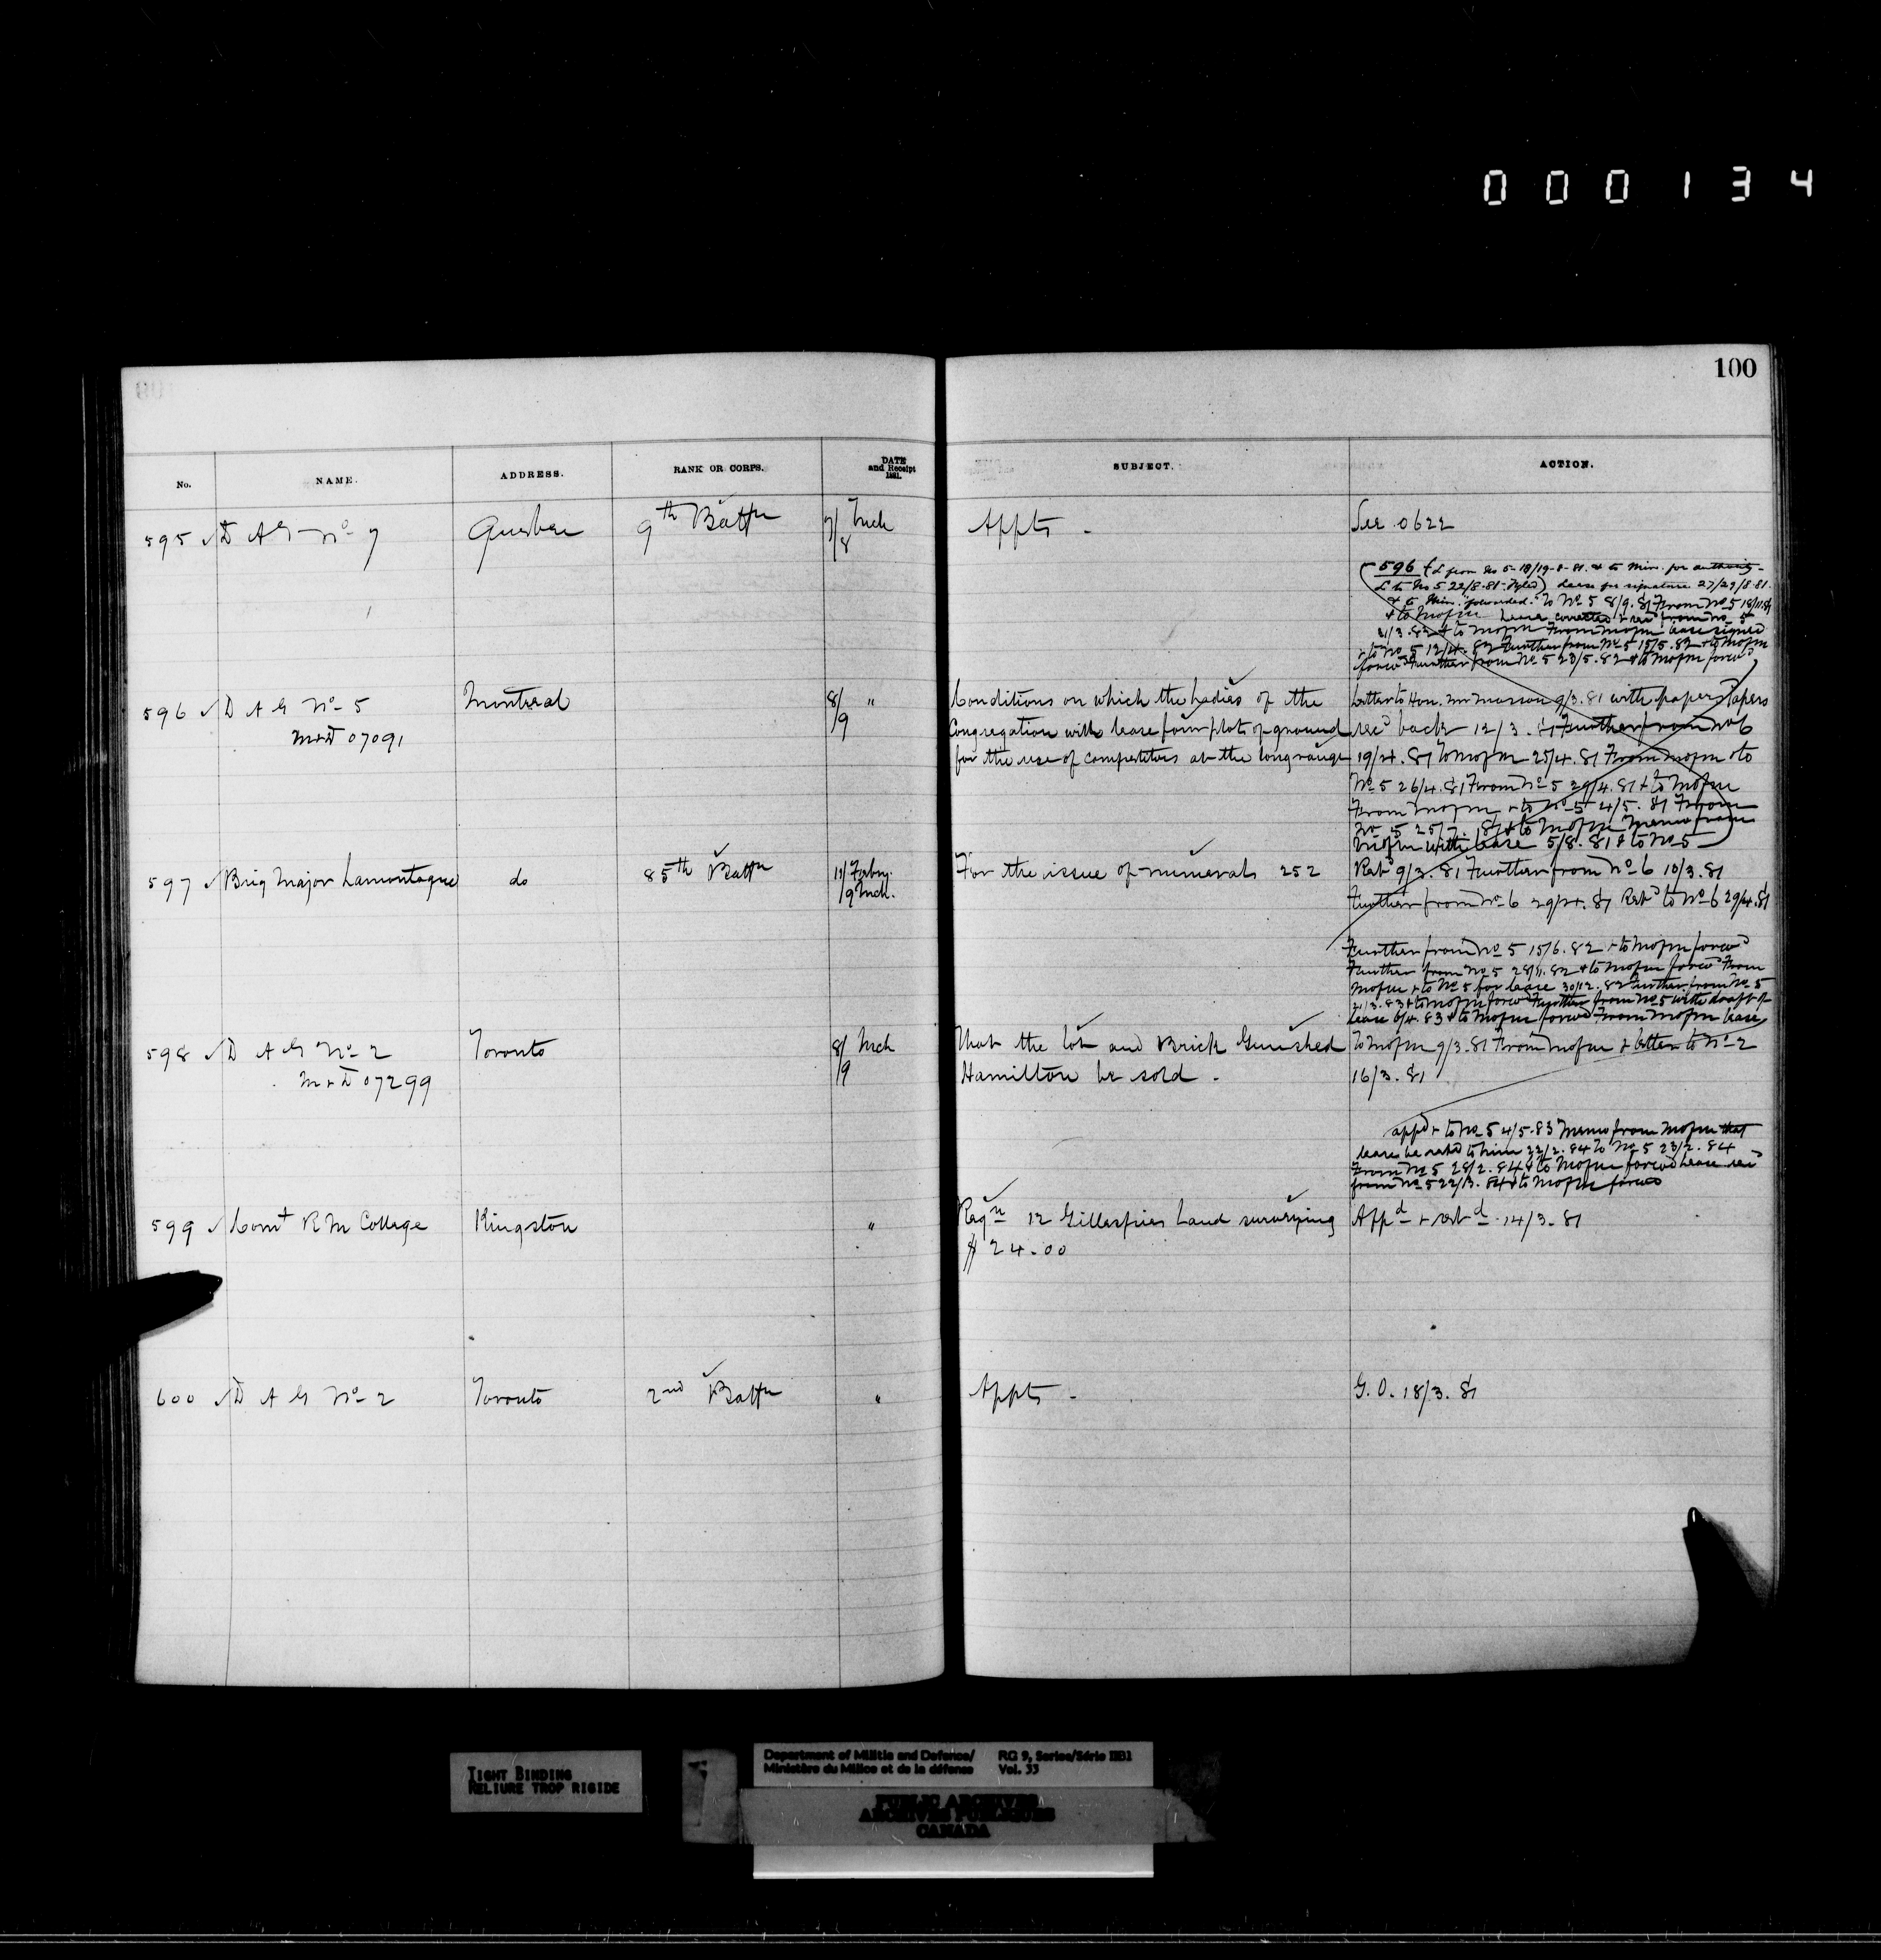 000134
100
No.
NAME.
ADDRESS.
RANK OR CORPS.
DATE
and Receipt
1881.
SUBJECT.
ACTION.
595 ✓ D A G No 7
Quebec
9th Battn
7/8 Mch
Appts -
See 0622
596 & L from No 5 - 18/19-8-81. & to Min. for authority -
L to No 5 22/8-81- Lease for signature 27/29/8.81.
& to Min. "forwarded." To No 5 8/9.81 From No 5 18/11.81
& to Mofm Lease corrected & recd from No 5
21/3.82 & to Mofm From Mofm lease signed
& to No 5 12/4.82 Further from No 5 15/5.82 & to Mofm
forwd Further from No 5 23/5.82 & to Mofm forwd
596 ✓ D A G No 5
M & D 07091
Montreal
8/9 "
Conditions on which the Ladies of the
Congregation will lease four plots of ground
for the use of competitors at the long range
Letter to Hon. Mr Masson 9/3.81 with papers Papers
recd back 12/3.81 Further from No 6
19/4.81 To Mofm 25/4.81 From Mofm & to
No 5 26/4.81 From No 5 29/4.81 & to Mofm
From Mofm & to No 5 4/5.81 From
No 5 25/7.81 & to Mofm Memo from
Mofm with lease 5/8.81 & to No 5
597 ✓ Brig Major Lamontagne
do
85th Battn
11/ Febry.
/9 Mch.
For the issue of numerals 252
Retd 9/3.81 Further from No 6 10/3.81
Further from No 6 29/4.81 Retd to No 6 29/4.81
Further from No 5 15/6.82 & to Mofm forwd
Further from No 5 28/11.82 & to Mofm forwd From
Mofm & to No 5 for lease 30/12.82 Further from No 5
21/3.83 & to Mofm forwd Further from No 5 with draft of
lease 6/4.83 & to Mofm forwd From Mofm lease
598 ✓ D A G No 2
M & D 07299
Toronto
8/9 Mch
That the lot and Brick Gunshed
Hamilton be sold -
To Mofm 9/3.81 From Mofm & letter to No 2
16/3.81
appd & to No 5 4/5.83 Memo from Mofm that
lease be retd to him 22/2.84 To No 5 23/2.84
From No 5 28/2.84 & to Mofm forwd Lease recd
from No 5 22/3.84 & to Mofm forwd
599 ✓ Comt R M College
Kingston
"
Reqn 12 Gillespies Land surveying
$24.00
Appd & retd 14/3.81
600 ✓ D A G No 2
Toronto
2nd Battn
"
Appts -
G.O. 18/3.81
TIGHT BINDING
RELIURE TROP RIGIDE
Department of Militia and Defence/
Ministère du Milice et de la défense
RG 9, Series/Série IIB1
Vol. 33
PUBLIC ARCHIVES
ARCHIVES PUBLIQUES
CANADA